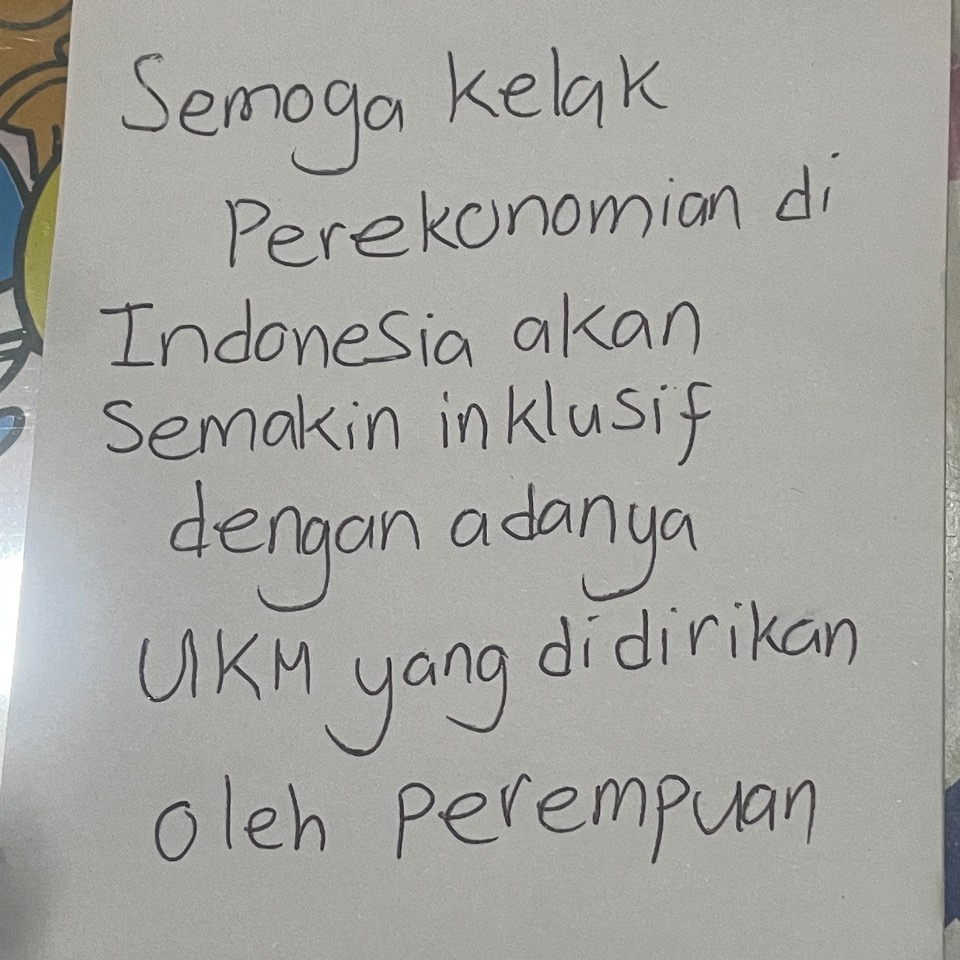 Semoga kelak
Perekonomian di
Indonesia akan
Semakin inklusif
dengan adanya
UKM yang didirikan
oleh perempuan